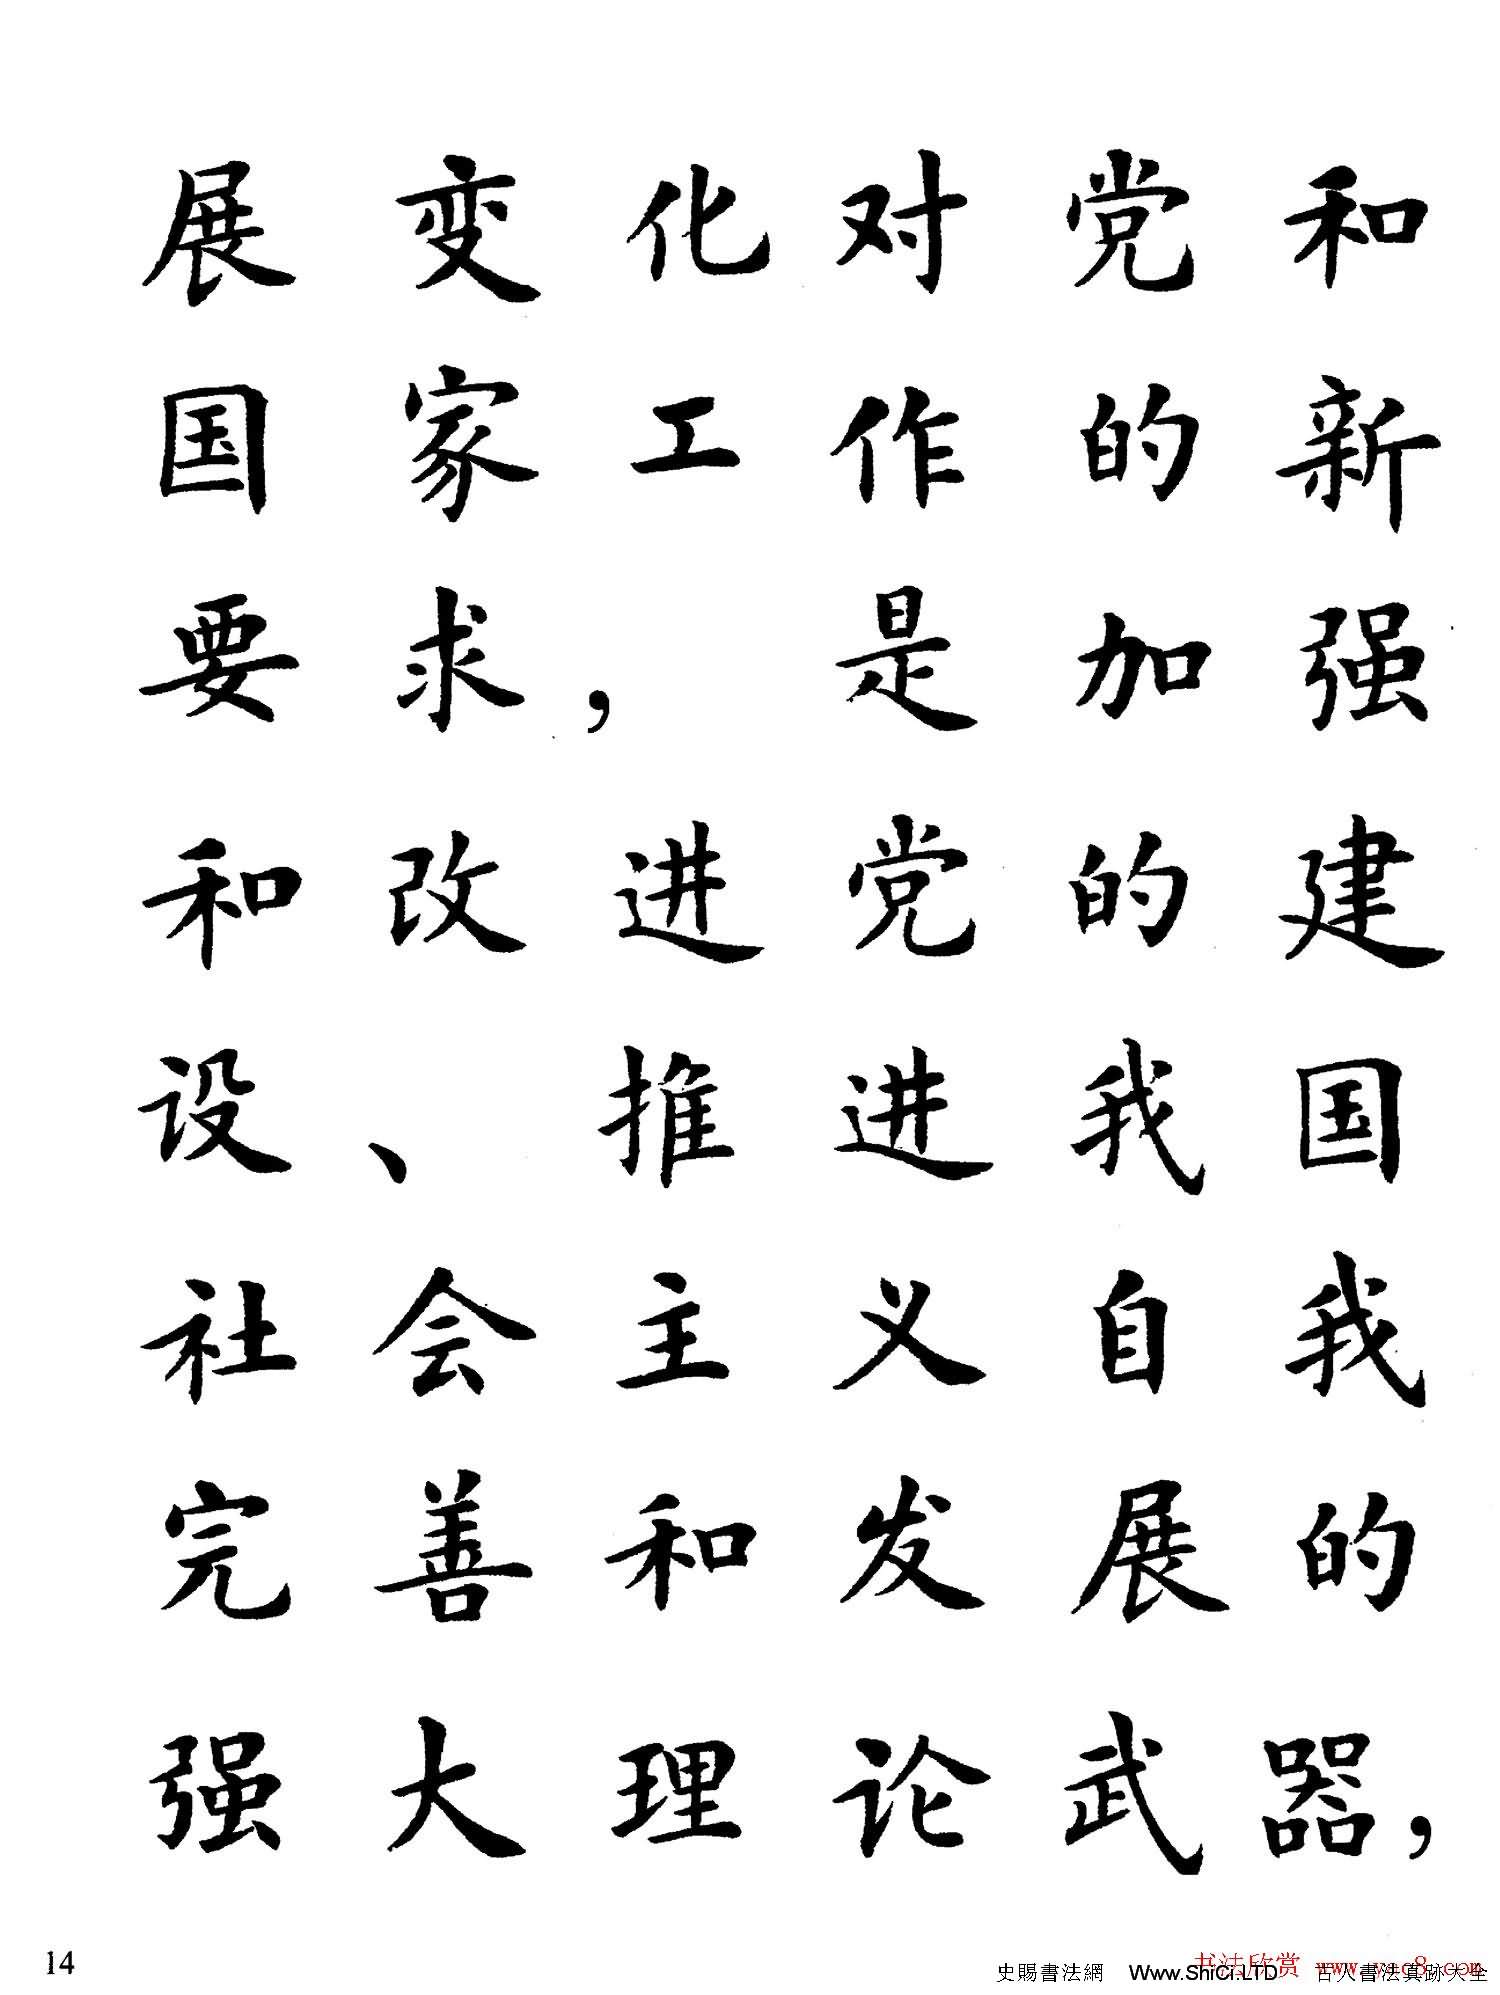 展变化对党和
国家工作的新
要求，是加强
和改进党的建
设、推进我国
社会主义自我
完善和发展的
强大理论武器，
14
史賜書法網 Www.ShiCi.LTD 古人書法真跡大全
书法欣赏 www.yac8.com